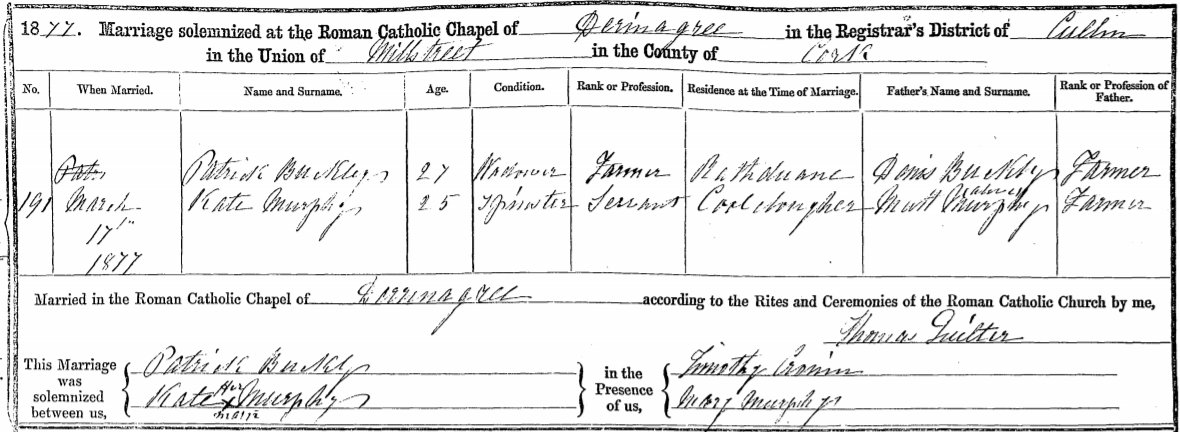 1877. Marriage solemnized at the Roman Catholic Chapel of Derinagree in the Registrar's District of Cullin
in the Union of Millstreet in the County of Cork
No. When Married. Name and Surname. Age. Condition. Rank or Profession. Residence at the Time of Marriage. Father's Name and Surname. Rank or Profession of Father.
Patrick Buckley 27 Widower Farmer Rathduane Denis Buckley Farmer
191 March Kate Murphy 25 Spinster Servant Coolclougher Matt Murphy alive Farmer
17th
1877
Married in the Roman Catholic Chapel of Derrinagree according to the Rites and Ceremonies of the Roman Catholic Church by me,
Thomas Quilter
This Marriage was solemnized between us, Patrick Buckly in the Presence of us, Timothy Cronin
Kate Her X Mark Murphy Mary Murphy